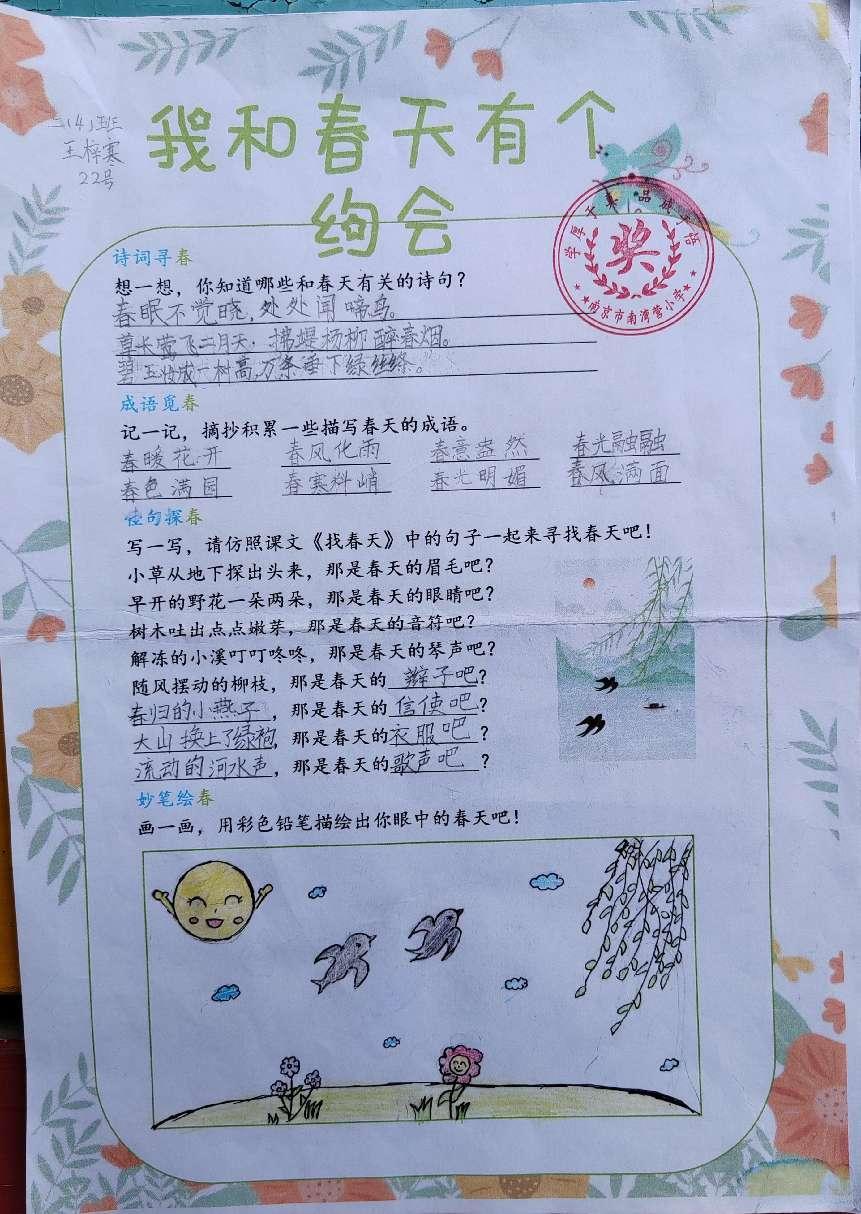 三(4)班
王梓寒
22号
我和春天有个
约会
学厚才真 品诚行
奖
★★南京市南湾营小学★★
诗词寻春
想一想，你知道哪些和春天有关的诗句？
春眠不觉晓，处处闻啼鸟。
草长莺飞二月天，拂堤杨柳醉春烟。
碧玉妆成一树高，万条垂下绿丝绦。
成语觅春
记一记，摘抄积累一些描写春天的成语。
春暖花开 春风化雨 春意盎然 春光融融
春色满园 春寒料峭 春光明媚 春风满面
佳句探春
写一写，请仿照课文《找春天》中的句子一起来寻找春天吧！
小草从地下探出头来，那是春天的眉毛吧？
早开的野花一朵两朵，那是春天的眼睛吧？
树木吐出点点嫩芽，那是春天的音符吧？
解冻的小溪叮叮咚咚，那是春天的琴声吧？
随风摆动的柳枝，那是春天的辫子吧？
春归的小燕子，那是春天的信使吧？
大山换上了绿袍，那是春天的衣服吧？
流动的河水声，那是春天的歌声吧？
妙笔绘春
画一画，用彩色铅笔描绘出你眼中的春天吧！